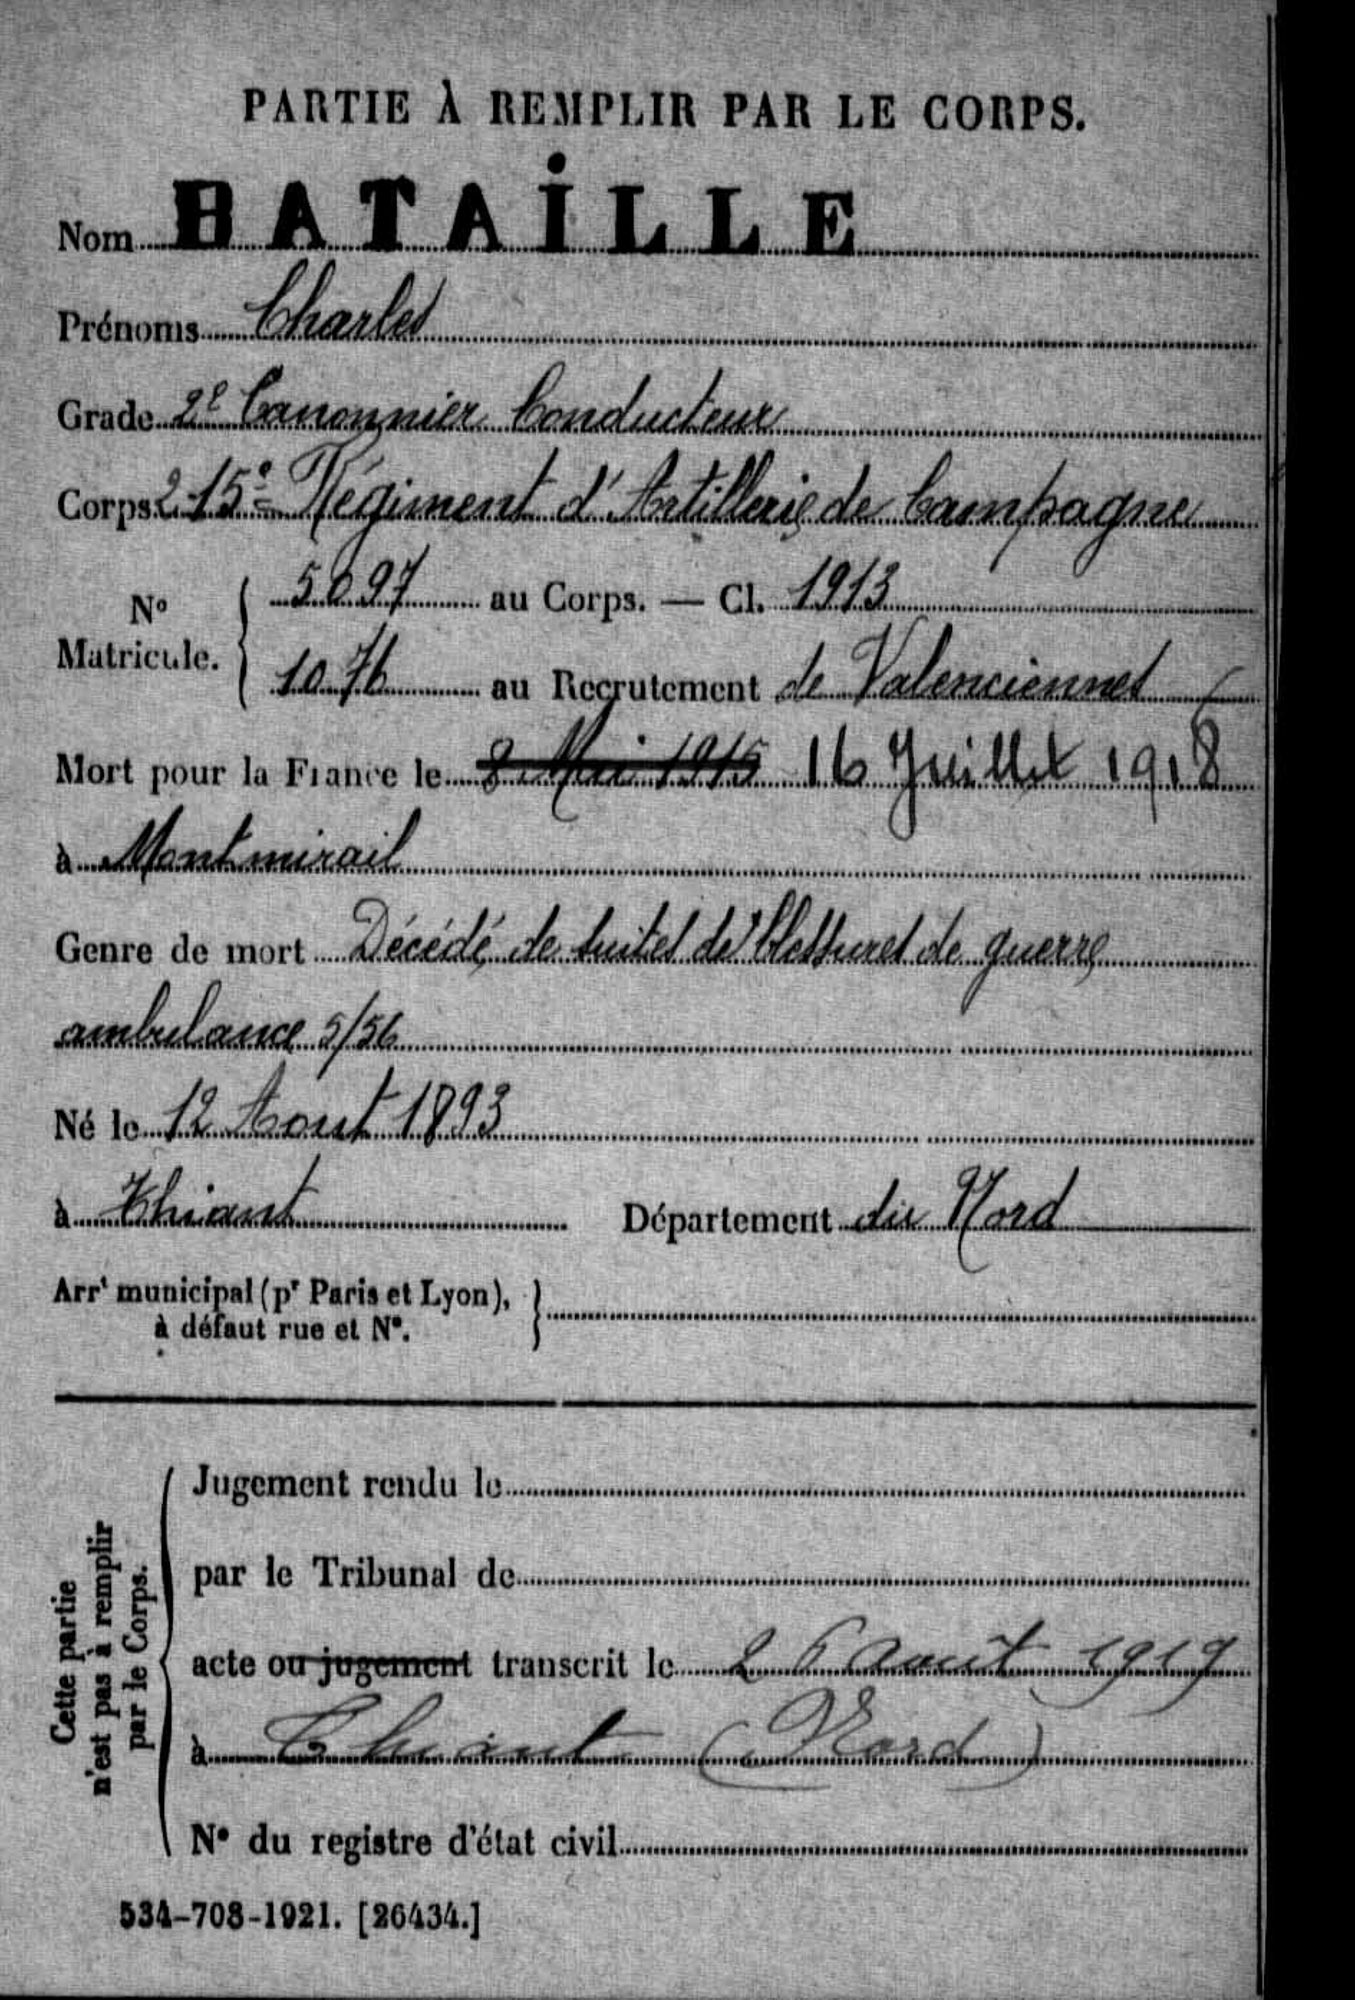 PARTIE À REMPLIR PAR LE CORPS.
Nom BATAİLLE
Prénoms Charles
Grade 2e Canonnier Conducteur
Corps 215e Régiment d'Artillerie de Campagne
No Matricule. 5097 au Corps. — Cl. 1913
1076 au Recrutement de Valenciennes
Mort pour la France le 8 Mai 1915 16 Juillet 1918
à Montmirail
Genre de mort Décédé de suites de blessures de guerre
ambulance 5/56
Né le 12 Aout 1893
à Thiant Département du Nord
Arrt municipal (pr Paris et Lyon),
à défaut rue et No.
Cette partie
n'est pas à remplir
par le Corps.
Jugement rendu le
par le Tribunal de
acte ou jugement transcrit le 26 Août 1919
à Thiant (Nord)
No du registre d'état civil
534-708-1921. [26434.]